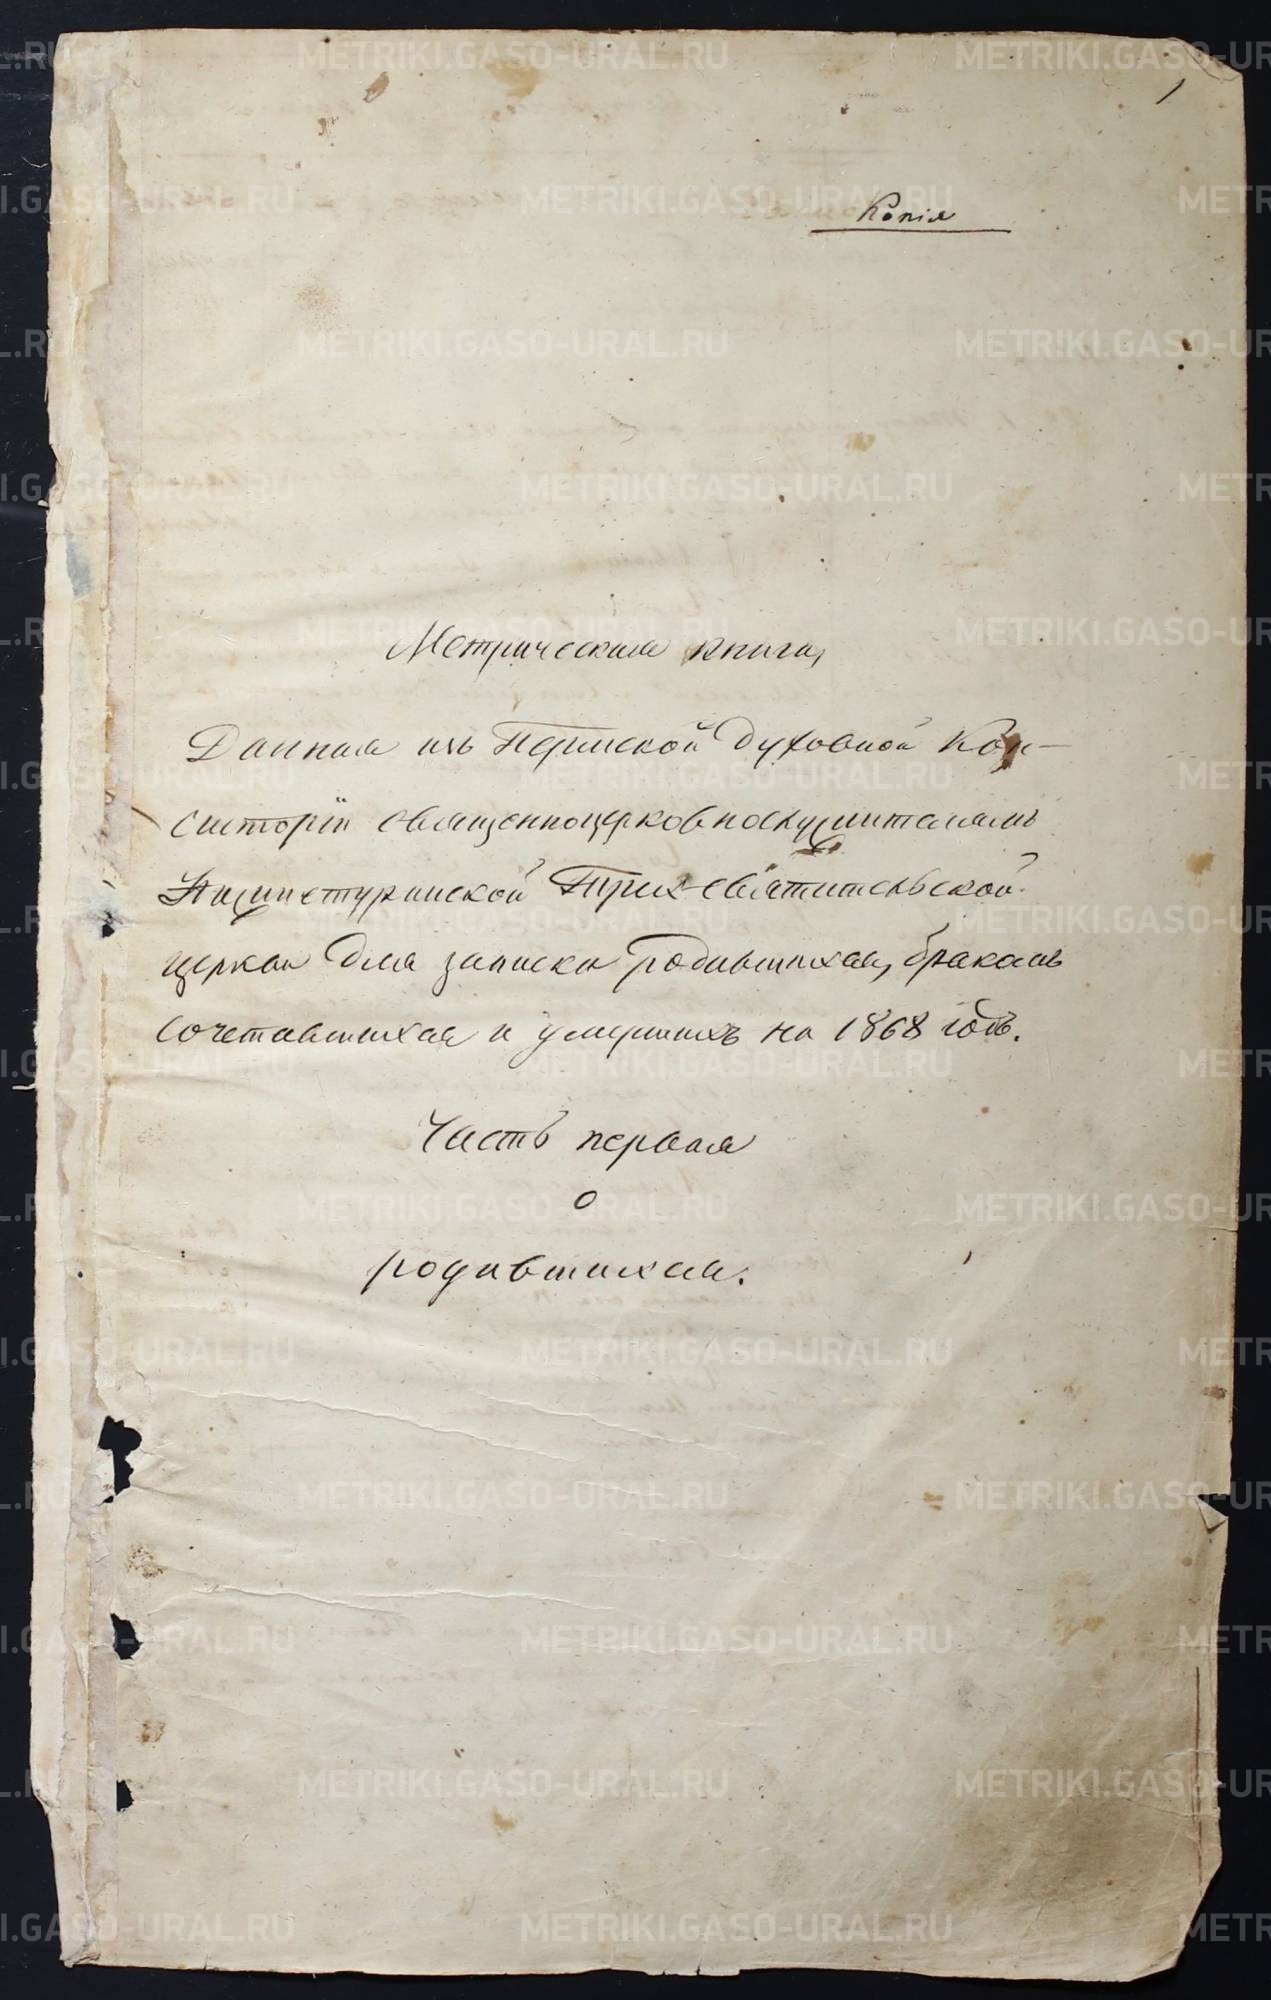 1
Копія
Метрическая книга,
Данная изъ Пермской Духовной Кон-
систоріи священноцерковнослужителямъ
Нижнетуринской Трех-святительской
церкви для записки родившихся, бракомъ
сочетавшихся и умершихъ на 1868 годъ.
Часть первая
о
родившихся.